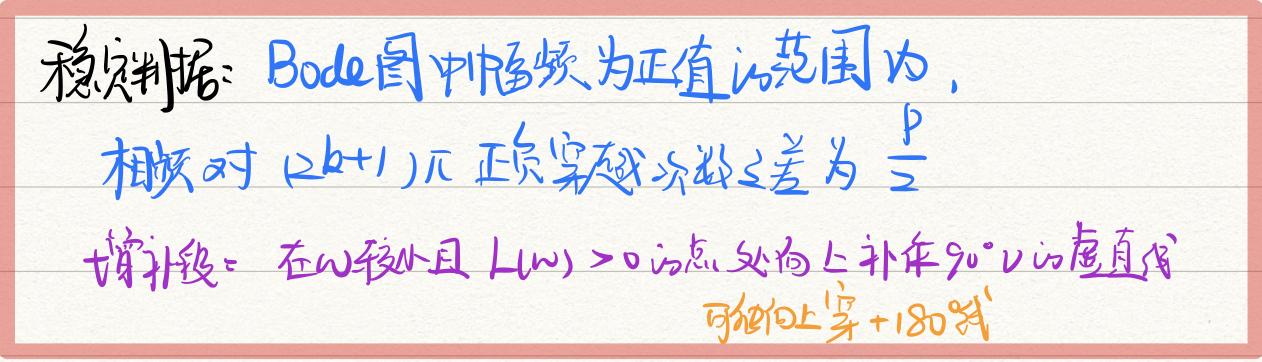 稳定判据: Bode图中幅频为正值的范围内,
相频对 (2k+1)π 正负穿越次数之差为 P/2
增补段: 在ω较小且 L(ω) > 0 的点处向上补作90°ν的虚直线
可能向上穿 +180°线